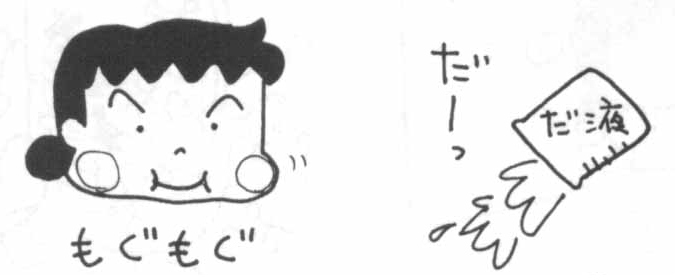 もぐもぐ
だーっ
だ液